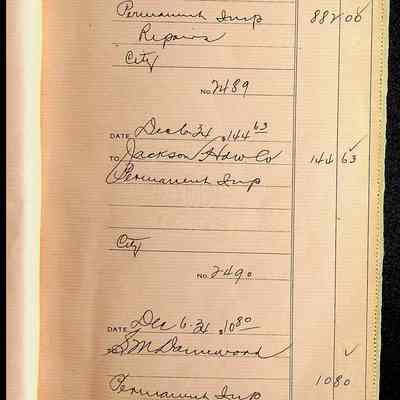 Permanent Imp 882 00
Repairs
City
No. 2489
DATE Dec 6-34 $144 63
TO Jackson Hdw Co 144 63
Permanent Imp
City
No. 2490
DATE Dec 6-34 $10 80
SM
Permanent Imp 10 80